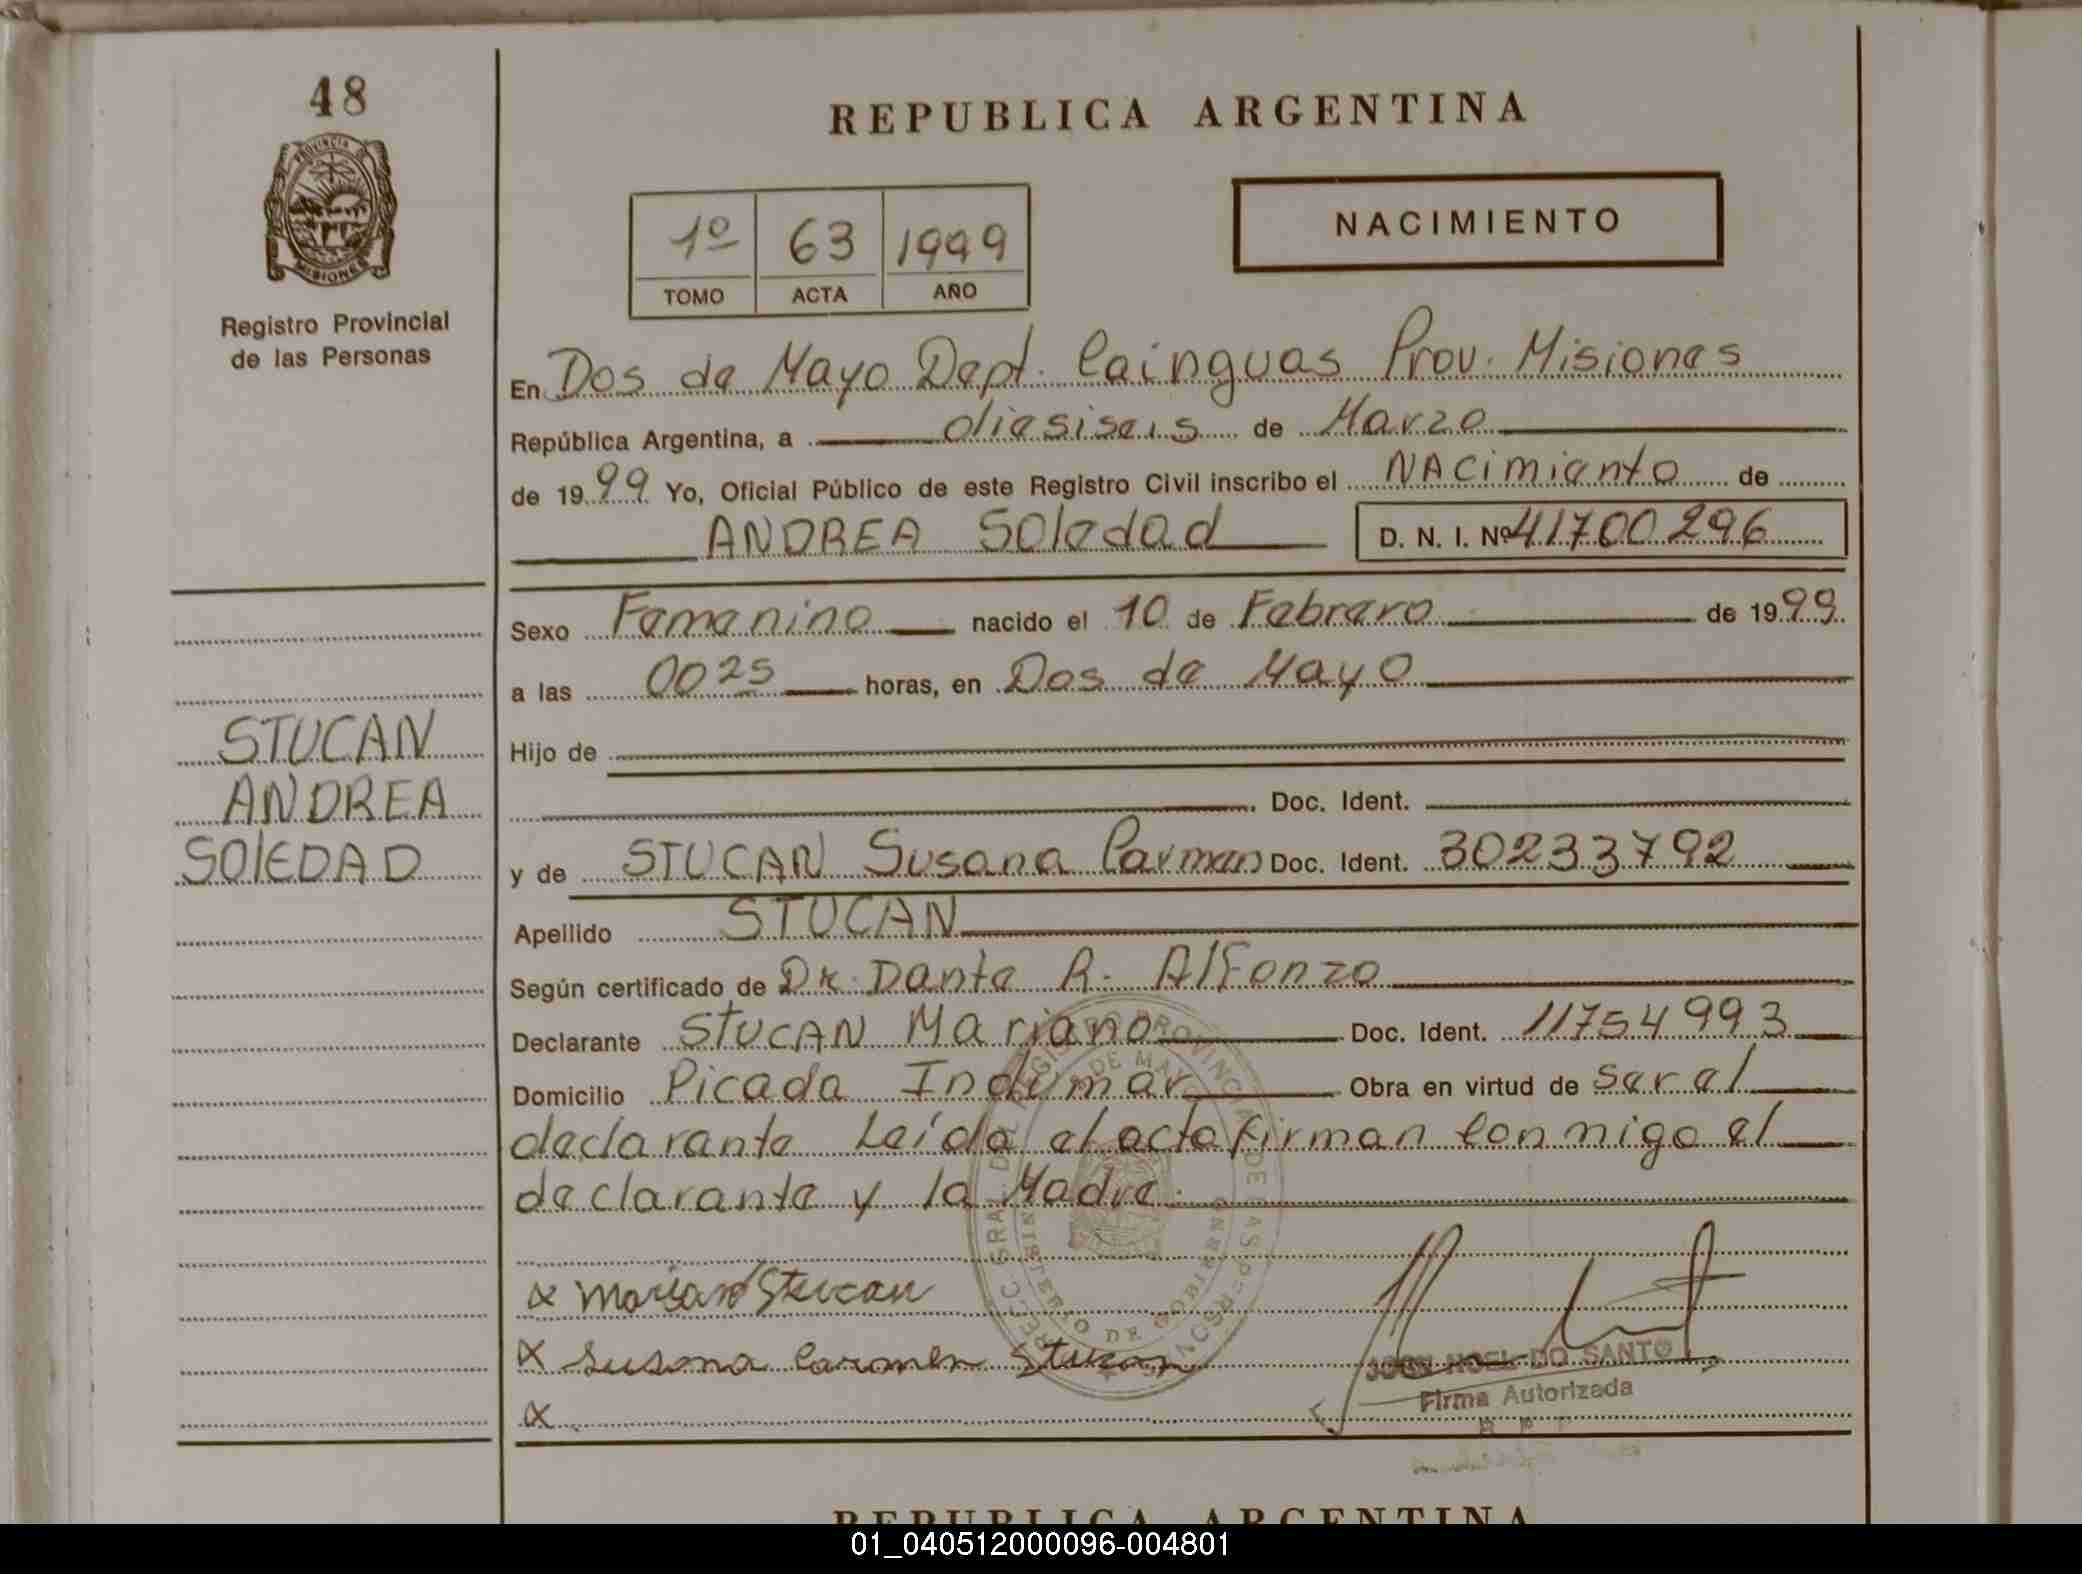 48
PROVINCIA DE
MISIONES
Registro Provincial
de las Personas
REPUBLICA ARGENTINA
1º 63 1999
TOMO ACTA AÑO
NACIMIENTO
En Dos de Mayo Dept. Cainguas Prov. Misiones
República Argentina, a diesiseis de Marzo
de 1999 Yo, Oficial Público de este Registro Civil inscribo el NACimiento de
ANDREA SOledad D. N. I. Nº 41700296
Sexo Femenino nacido el 10 de Febrero de 1999
a las 0025 horas, en Dos de Mayo
Hijo de
Doc. Ident.
y de STUCAN Susana Carmen Doc. Ident. 30233792
Apellido STUCAN
Según certificado de Dr. Dante R. Alfonzo
Declarante STUCAN Mariano Doc. Ident. 11754993
Domicilio Picada Indumar Obra en virtud de ser el
declarante Leída el acta firman Conmigo el
declarante y la Madre.
STUCAN
ANDREA
SOlEDAD
x Mariano Stucan
x Susana Carmen Stucan
x
DO SANTO
Firma Autorizada
REPUBLICA ARGENTINA
01_040512000096-004801